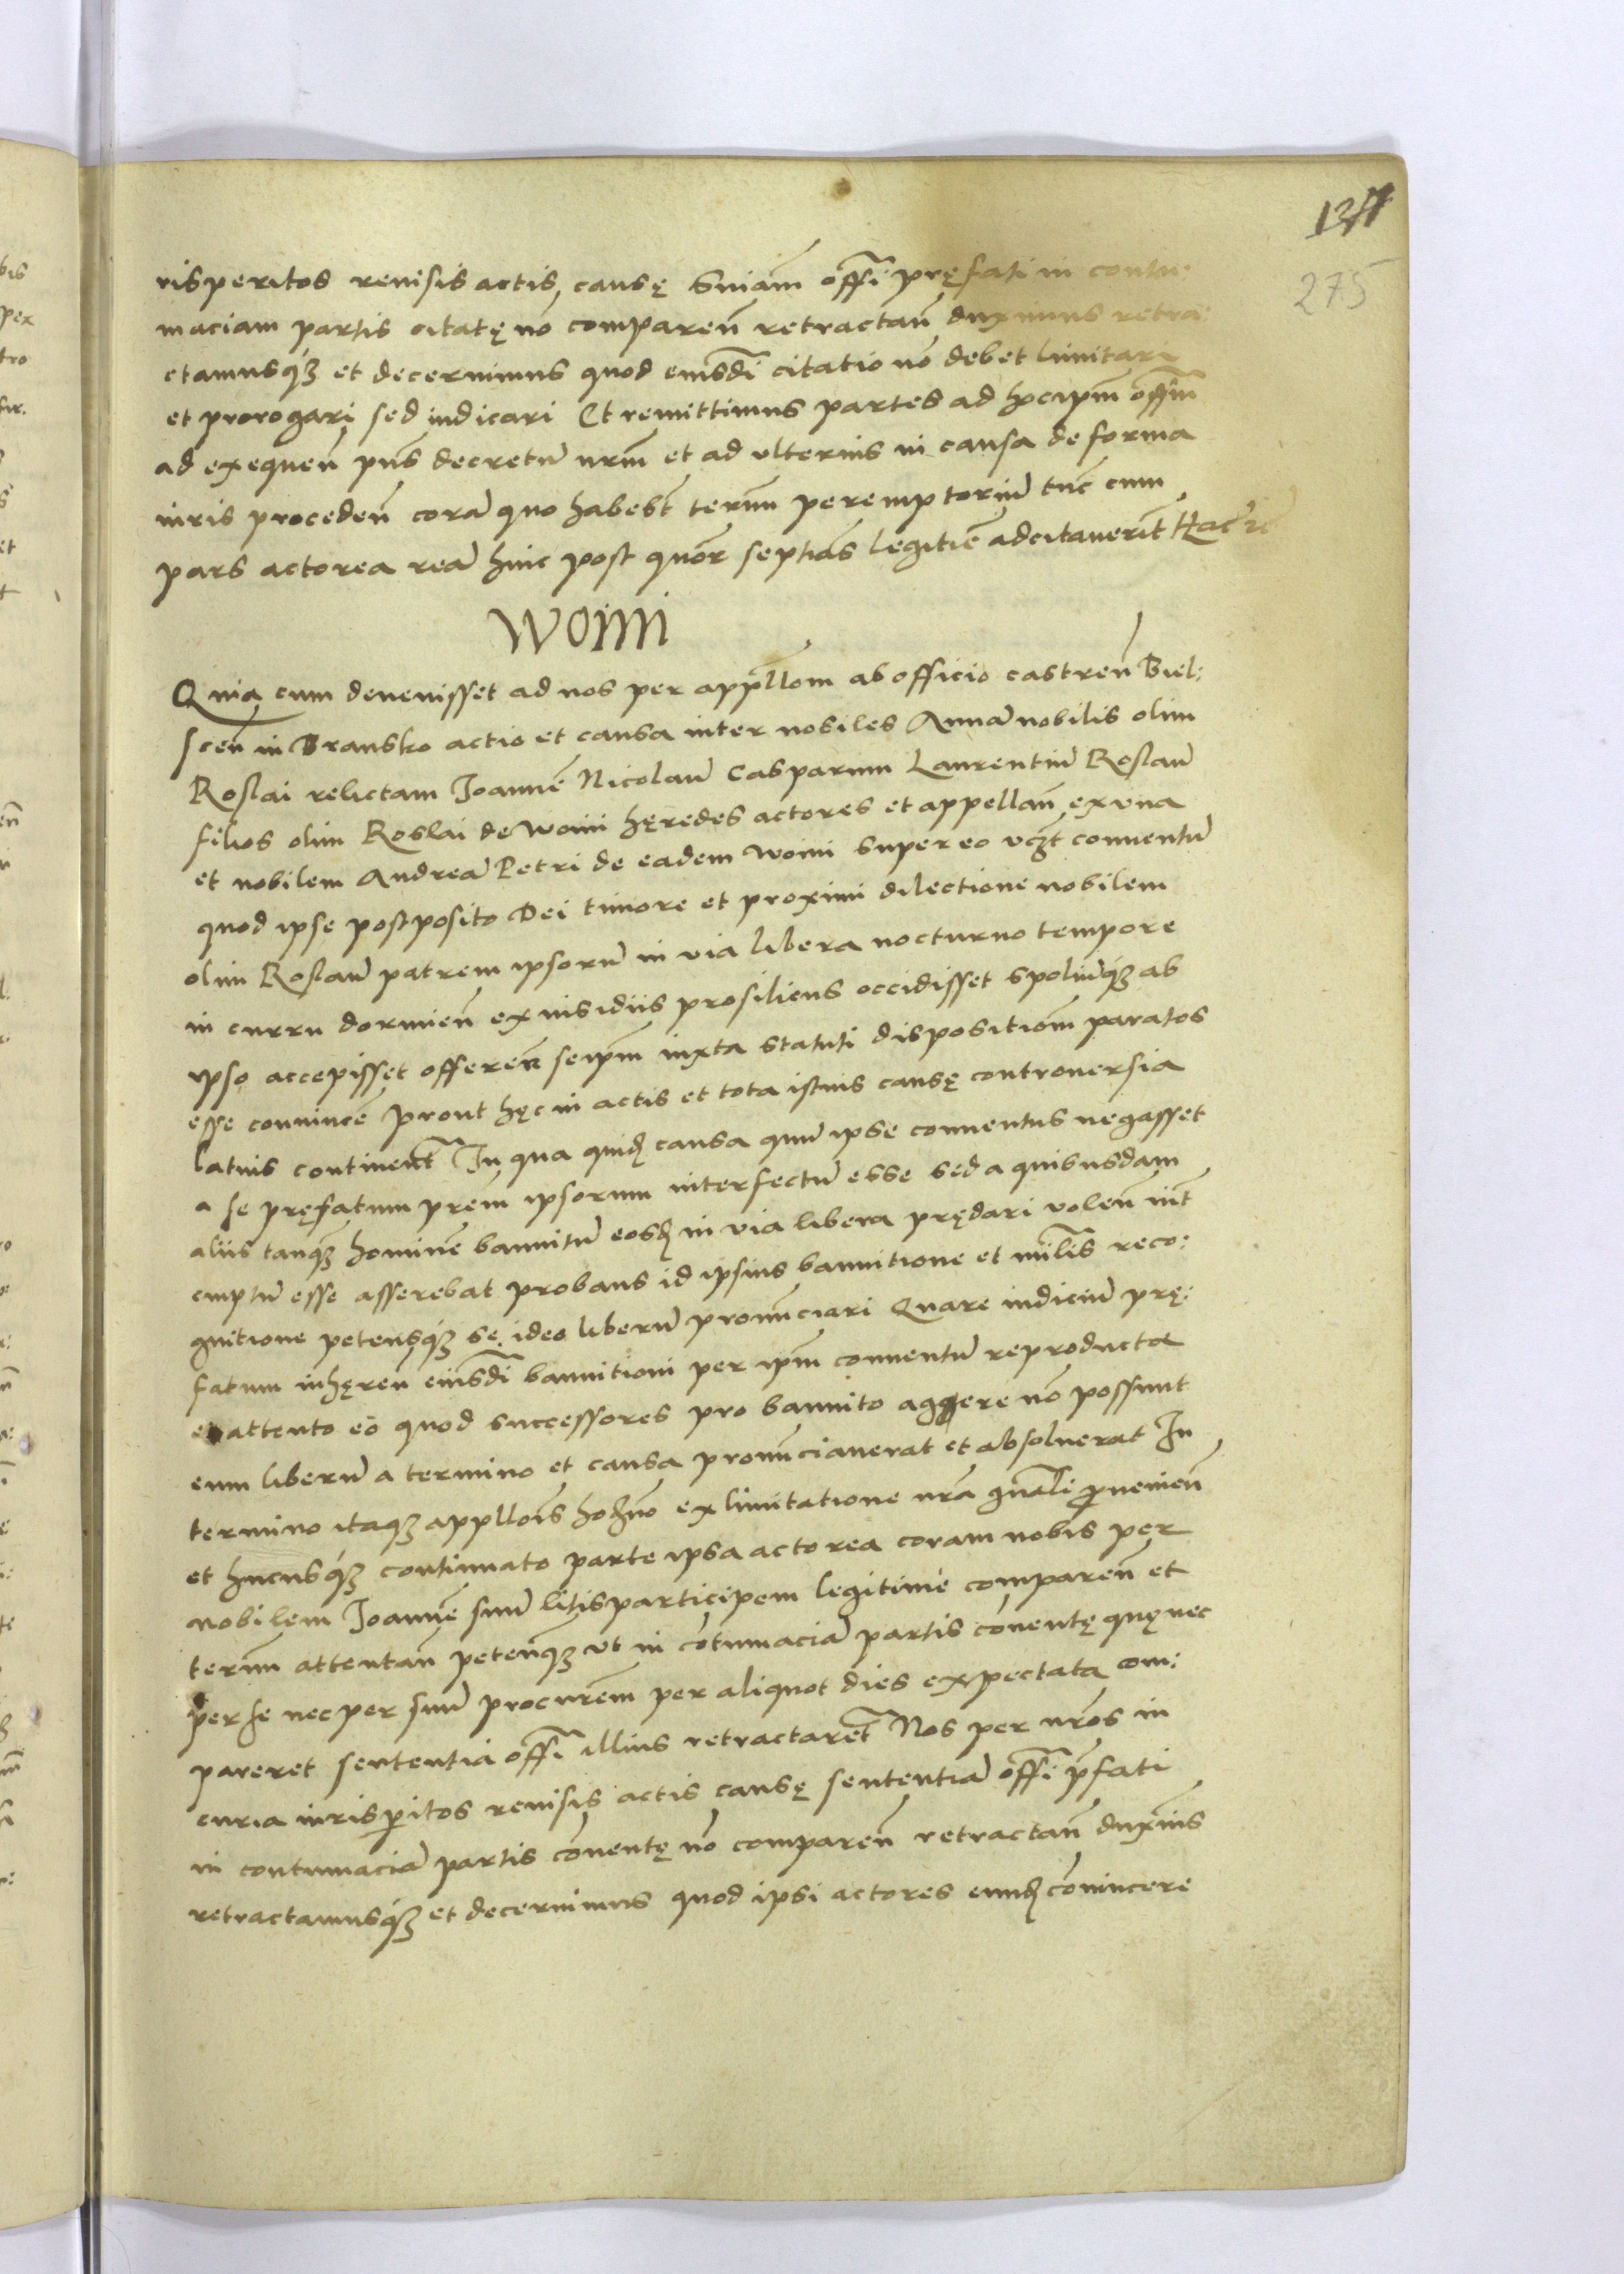 137
275
risperitos reuisis actis causę Sniam offi pręfati in contu:
maciam partis citatę no comparen retractan duximus retra:
ctamusq3 et decernimus quod eiusdi citatio no debet limitari
et prorogari sed iudicari Et remittimus partes ad hocipm offim
ad exequen pns decretu nrm et ad vlterius in causa de forma
iuris proceden cora quo habebt termn peremptoriu tnc cum
pars actorea rea hinc post quor septias legitie adcitauerit Hac re
Woini
Quia cum deuenisset ad nos per appllom ab officio castren Biel:
scen in Bransko actio et causa inter nobiles Anna nobilis olim
Roslai relictam Joanne Nicolau Casparum Laurentiu Roslau
filios olim Roslai de Woini hęredes actores et appellan ex vna
et nobilem Andrea Petri de eadem Woini super eo vczt conuentu
quod ipse postposito Dei timore et proximi dilectione nobilem
olim Roslau patrem ipsoru in via libera nocturno tempore
in curru dormien ex insidiis prosiliens occidisset spoliuq3 ab
ipso accepisset offeren seipm iuxta statuti dispositiom paratos
esse conuince prout hęc in actis et tota istius causę controuersia
latius continent In qua quid causa quu ipse conuentus negasset
a se pręfatum prem ipsorum interfectu esse sed a quibusdam
aliis tanq3 homine bannitu eosd in via libera prędari volen int
emptu esse asserebat probans id ipsius bannitione et milis reco:
gnitione petensq3 se ideo liberu pronunciari Quare iudiciu prę:
fatum inhęren eiusdi bannitioni per ipm conuentu reproducta
attento eo quod successores pro bannito aggere no possunt
eum liberu a termino et causa pronunciauerat et absoluerat In
termino itaq3 appllois hoderno ex limitatione nra gnali prouenien
et hucusq3 continuato parte ipsa actorea coram nobis per
nobilem Joanne suu litisparticipem legitime comparen et
termn attentan petenq3 vt in cotumacia partis conuentę quę nec
per se nec per suu procurem per aliquot dies expectata com:
pareret sententia offi illius retractaret Nos per nros in
curia iurisperitos reuisis actis causę sententia offi pfati
in contumacia partis conuentę no comparen retractan duxims
retractamusq3 et decernimus quod ipsi actores eund conuincere